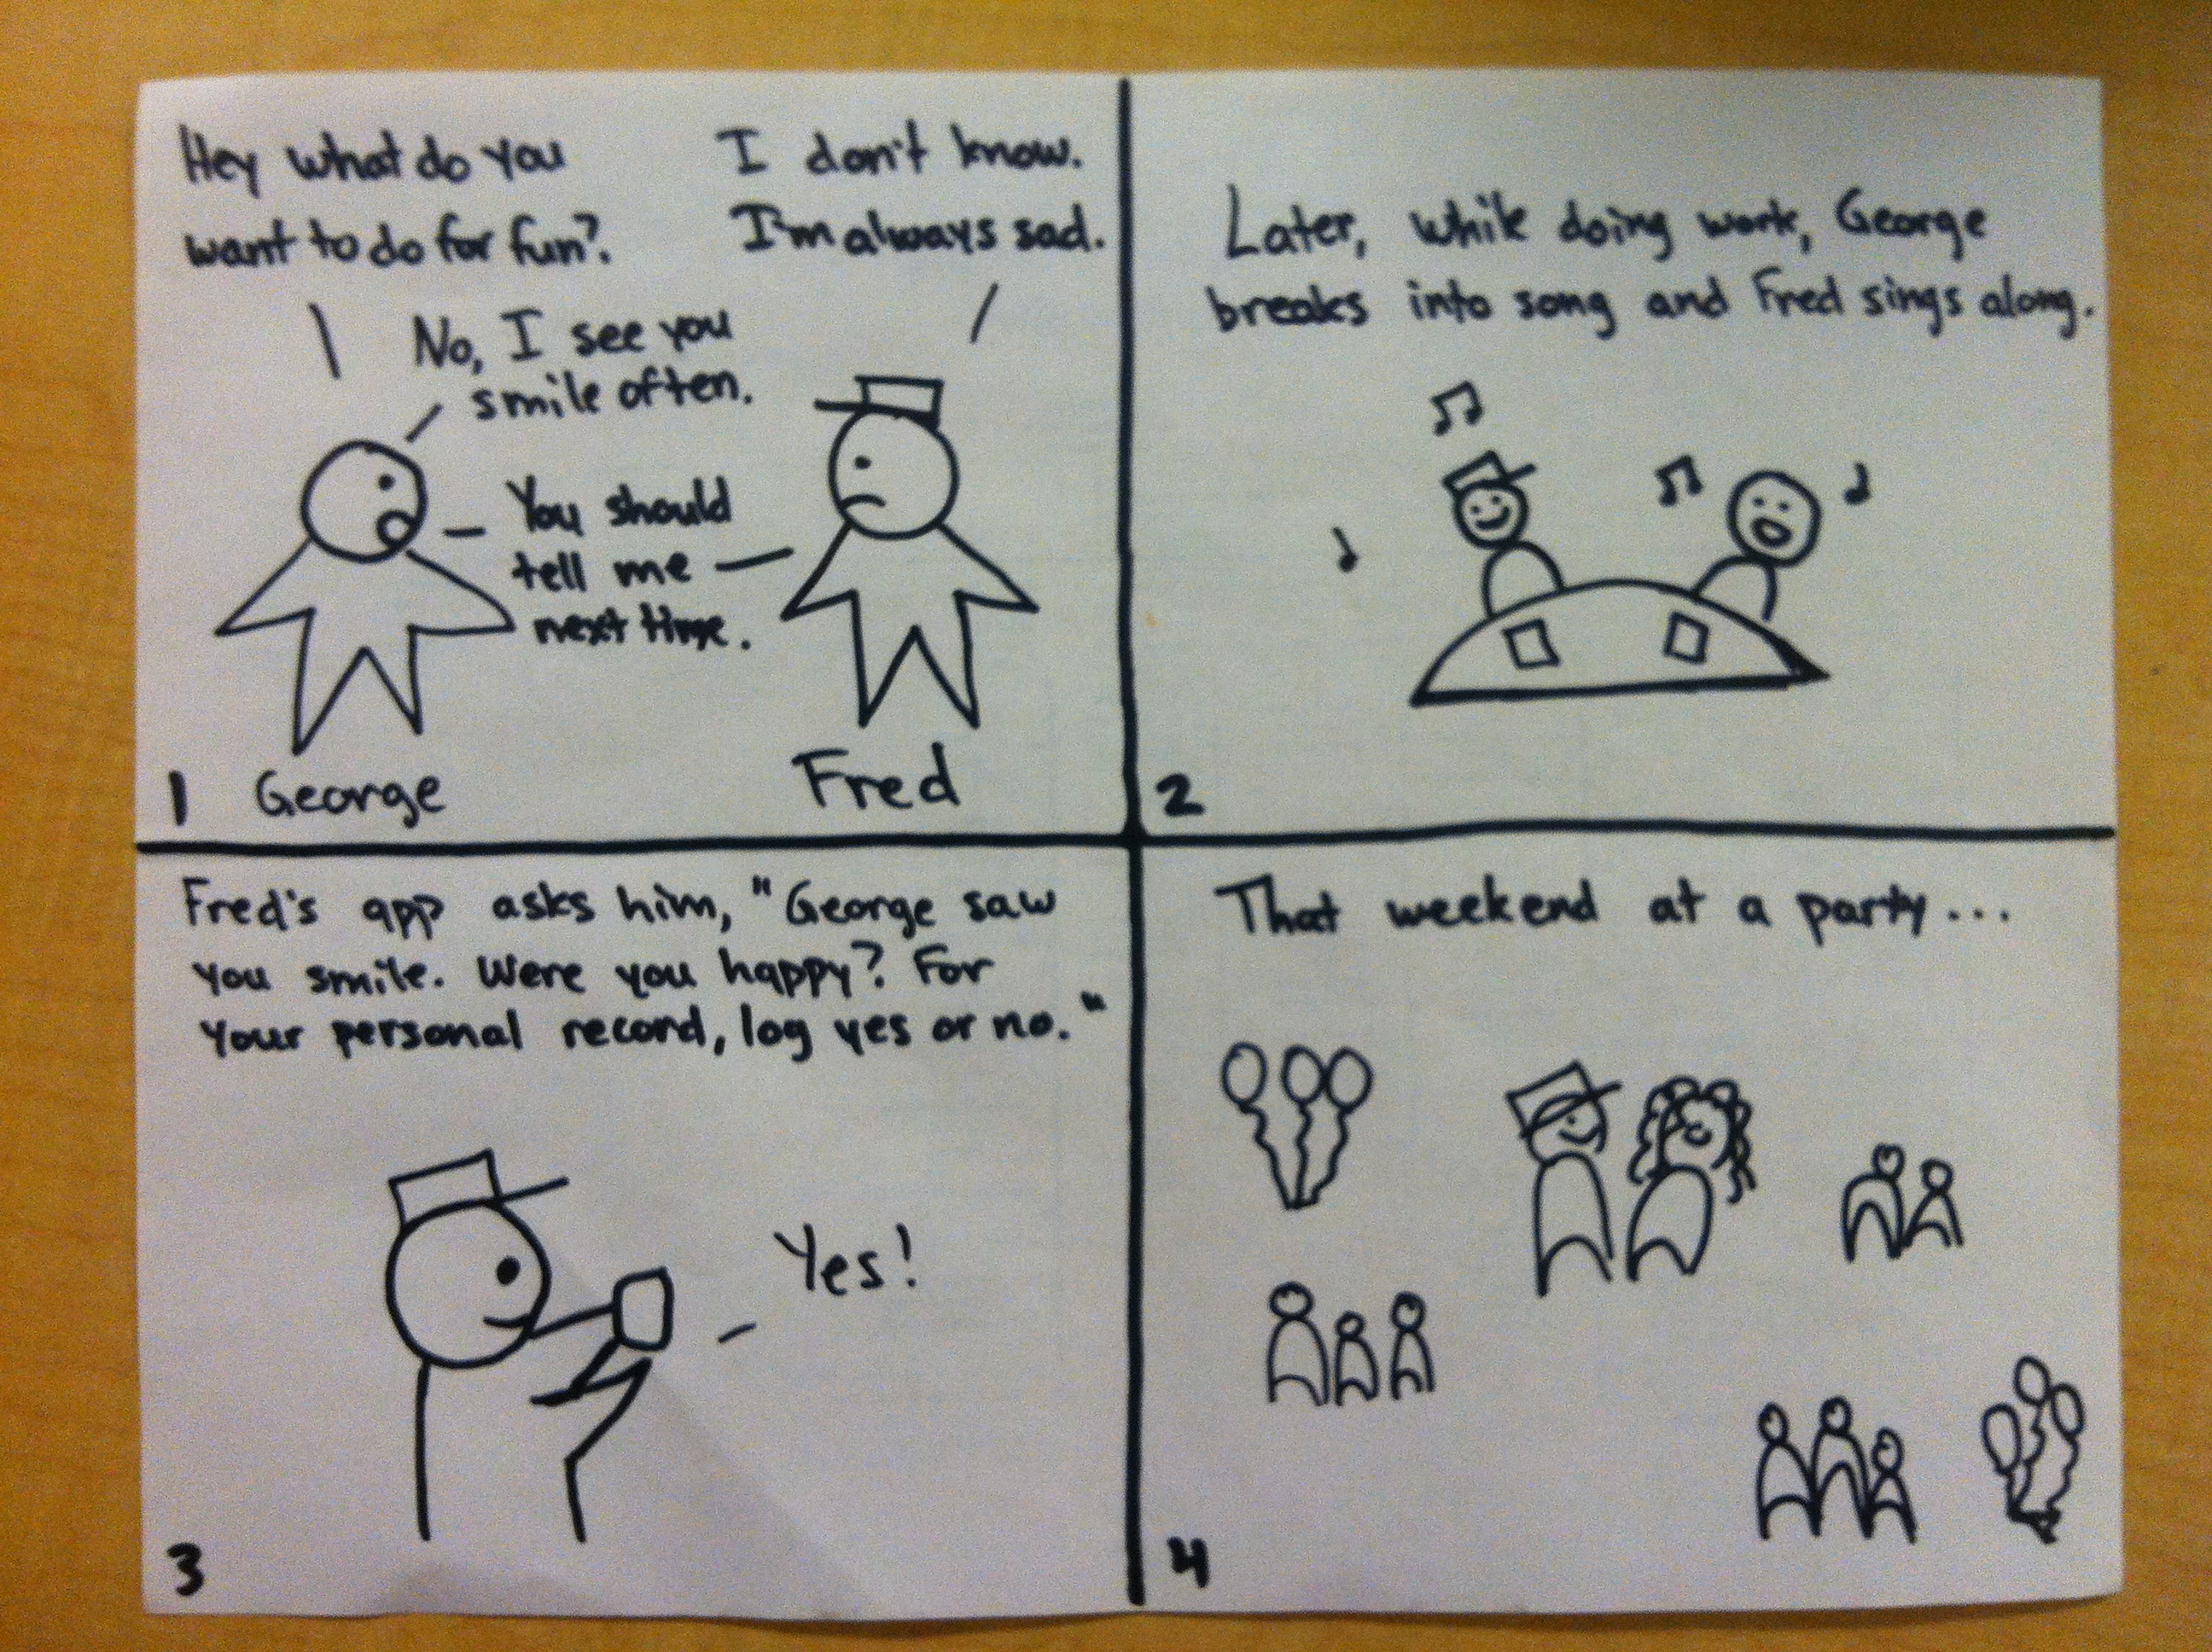 Hey what do you
want to do for fun?
I don't know.
I'm always sad.
No, I see you
smile often.
You should
tell me
next time.
1
George
Fred
Later, while doing work, George
breaks into song and Fred sings along.
2
Fred's app asks him, "George saw
you smile. Were you happy? For
your personal record, log yes or no."
Yes!
3
That weekend at a party...
4